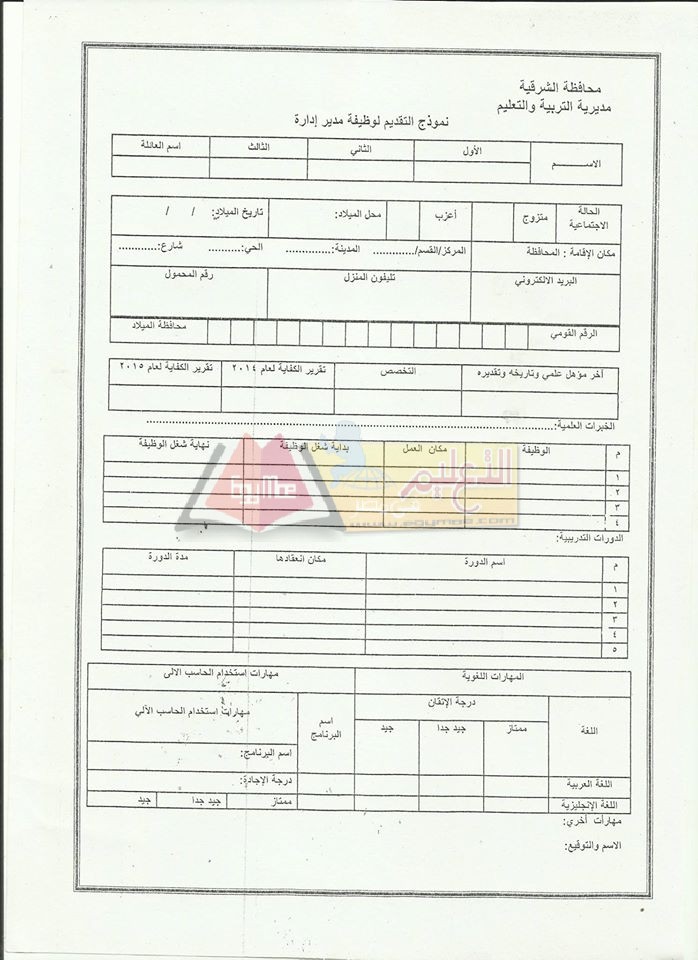 محافظة الشرقية
مديرية التربية والتعليم
نموذج التقديم لوظيفة مدير إدارة
الاســــــم الأول الثاني الثالث اسم العائلة
الحالة الاجتماعية متزوج أعزب محل الميلاد: تاريخ الميلاد: / /
مكان الإقامة : المحافظة المركز/القسم/............. المدينة:................ الحي:.......... شارع:............
البريد الالكتروني تليفون المنزل رقم المحمول
الرقم القومي محافظة الميلاد
أخر مؤهل علمي وتاريخه وتقديره التخصص تقرير الكفاية لعام ٢٠١٤ تقرير الكفاية لعام ٢٠١٥
الخبرات العلمية:........................................................
م الوظيفة مكان العمل بداية شغل الوظيفة نهاية شغل الوظيفة
١
٢
٣
٤
التعليم
www.edumoe.com
الدورات التدريبية:
م أسم الدورة مكان انعقادها مدة الدورة
١
٢
٣
٤
٥
المهارات اللغوية مهارات استخدام الحاسب الالى
اللغة درجة الإتقان اسم البرنامج مهارات استخدام الحاسب الآلي
ممتاز جيد جدا جيد
اسم البرنامج:
اللغة العربية درجة الإجادة:
اللغة الإنجليزية ممتاز جيد جدا جيد
مهارات أخري:
الاسم والتوقيع: